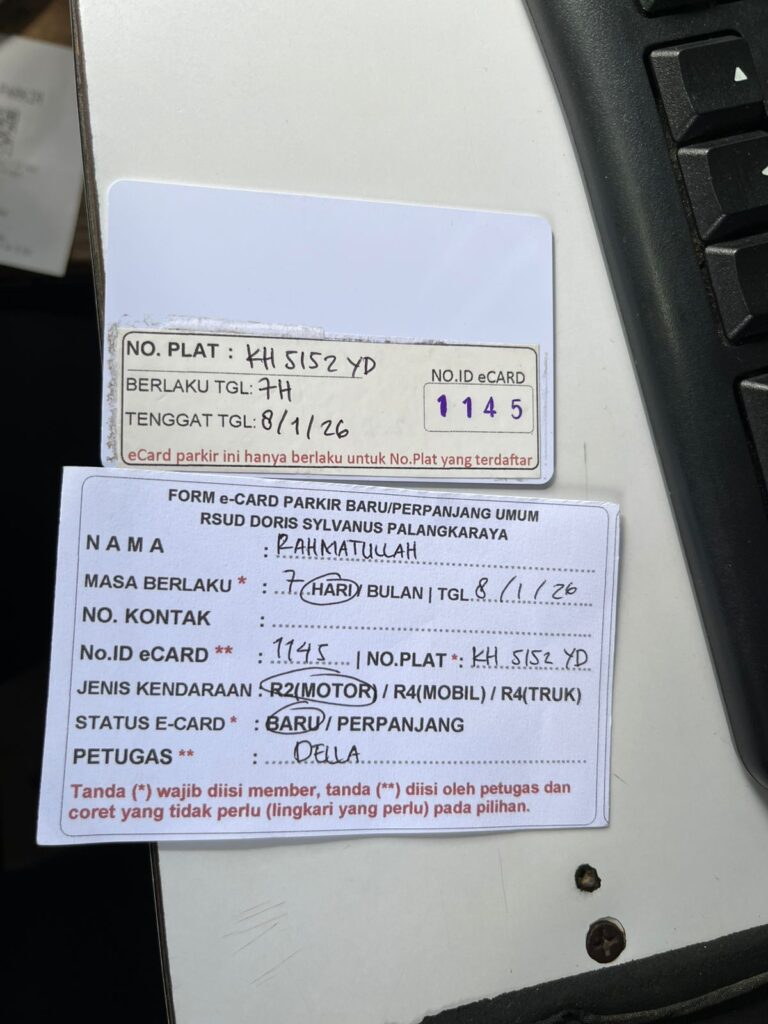 NO. PLAT : KH 5152 YD
BERLAKU TGL: 7H
NO.ID eCARD
1145
TENGGAT TGL: 8/1/26
eCard parkir ini hanya berlaku untuk No.Plat yang terdaftar
FORM e-CARD PARKIR BARU/PERPANJANG UMUM
RSUD DORIS SYLVANUS PALANGKARAYA
NAMA : RAHMATULLAH
MASA BERLAKU * : 7 HARI / BULAN | TGL 8/1/26
NO. KONTAK :
No.ID eCARD ** : 1145 | NO.PLAT *: KH 5152 YD
JENIS KENDARAAN : R2(MOTOR) / R4(MOBIL) / R4(TRUK)
STATUS E-CARD * : BARU / PERPANJANG
PETUGAS ** : DELLA
Tanda (*) wajib diisi member, tanda (**) diisi oleh petugas dan
coret yang tidak perlu (lingkari yang perlu) pada pilihan.